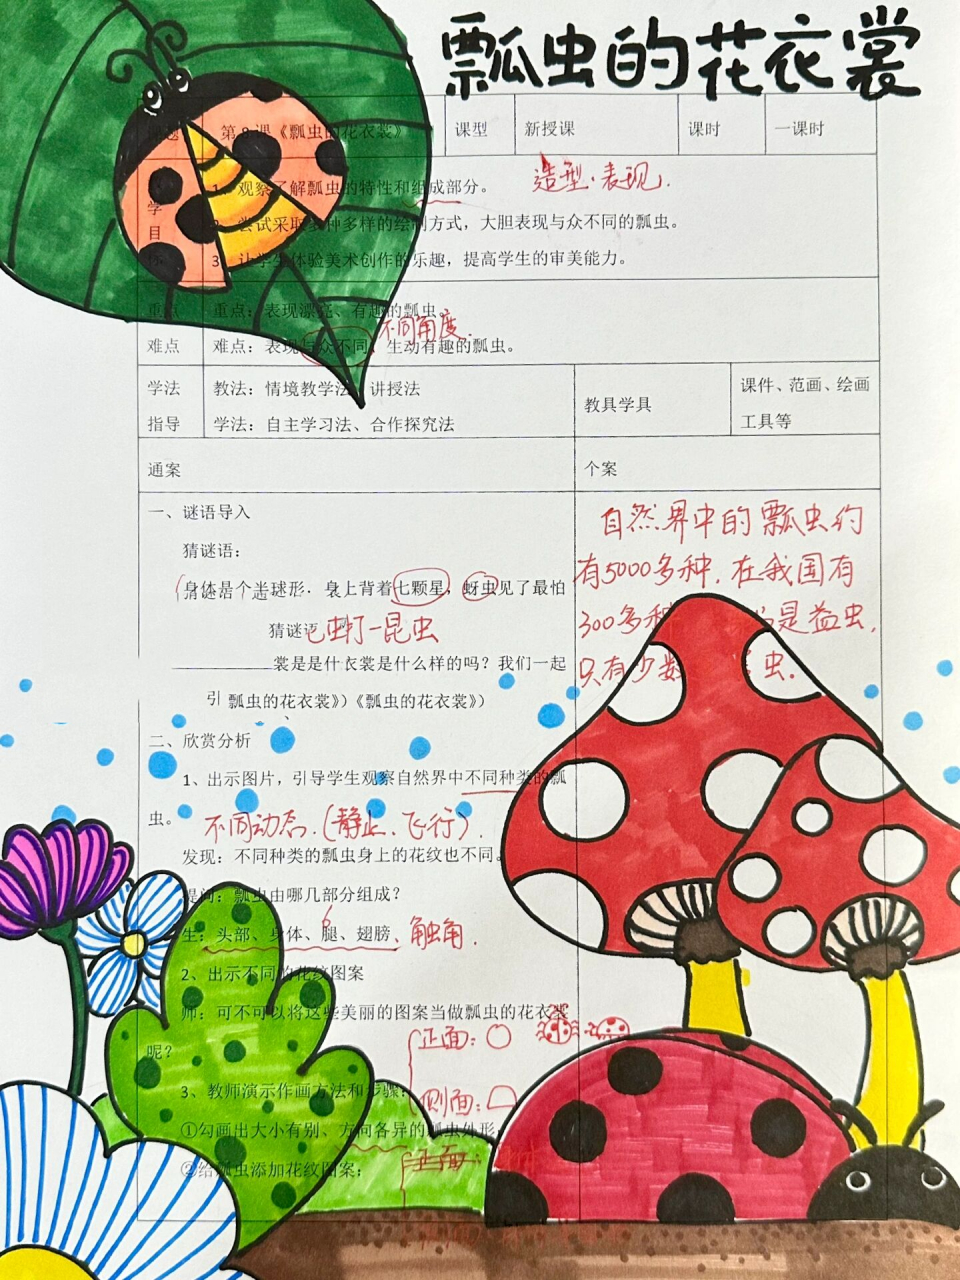 瓢虫的花衣裳
第9课《瓢虫的花衣裳》 课型 新授课 课时 一课时
1、观察了解瓢虫的特性和组成部分。 造型·表现.
学 2、尝试采取多种多样的绘制方式，大胆表现与众不同的瓢虫。
目
标 3、让学生体验美术创作的乐趣，提高学生的审美能力。
重点 重点：表现漂亮、有趣的瓢虫。
不同角度.
难点 难点：表现与众不同、生动有趣的瓢虫。
学法 教法：情境教学法、讲授法 教具学具 课件、范画、绘画
指导 学法：自主学习法、合作探究法 工具等
通案 个案
一、谜语导入 自然界中的瓢虫约
猜谜语：
身体是个半球形，身上背着七颗星，蚜虫见了最怕 有5000多种.在我国有
猜谜语 打一昆虫 300多种 是益虫,
裳是是什衣裳是什么样的吗？我们一起 只有少数 虫.
引 瓢虫的花衣裳》）《瓢虫的花衣裳》）
二、欣赏分析
1、出示图片，引导学生观察自然界中不同种类的瓢
虫。 不同动态.(静止、飞行).
发现：不同种类的瓢虫身上的花纹也不同。
提问：瓢虫由哪几部分组成？
生：头部、身体、腿、翅膀、触角.
2、出示不同的花纹图案
师：可不可以将这些美丽的图案当做瓢虫的花衣裳
呢？ 正面:
3、教师演示作画方法和步骤： 侧面:
①勾画出大小有别、方向各异的瓢虫外形
②给瓢虫添加花纹图案；